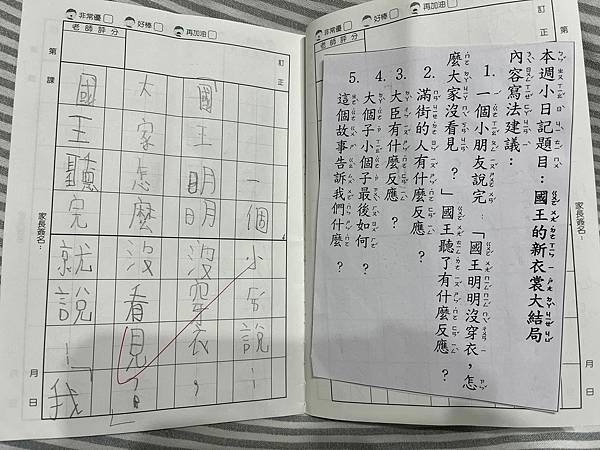 非常優 好棒 再加油
老師評分
訂正
第 課
一個小說：
「國王明明沒穿衣，
大家怎麼沒看見？」
國王聽完就說：「我
家長簽名：
月 日
非常優 好棒 再加油
老師評分
第
訂正
本週小日記題目：國王的新衣裳大結局
內容寫法建議：
1. 一個小朋友說完：「國王明明沒穿衣，怎
麼大家沒看見？」國王聽了有什麼反應？
2. 滿街的人有什麼反應？
3. 大臣有什麼反應？
4. 大個子小個子最後如何？
5. 這個故事告訴我們什麼？
家長簽名：
月 日